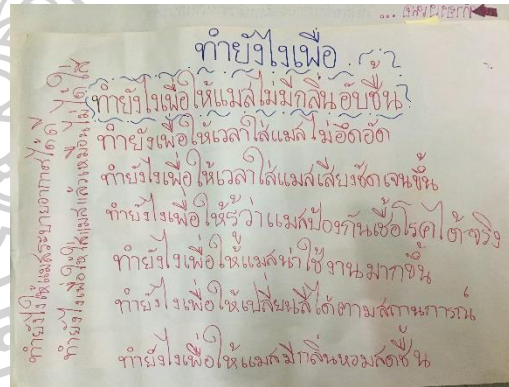 ทำยังไงเพื่อ...?
ทำยังไงเพื่อให้แมสไม่มีกลิ่นอับชื้น?
ทำยังเพื่อให้เวลาใส่แมสไม่อึดอัด
ทำยังไงเพื่อให้เวลาใส่แมสเสียงชัดเจนขึ้น
ทำยังไงเพื่อให้รู้ว่าแมสป้องกันเชื้อโรคได้จริง
ทำยังไงเพื่อให้แมสน่าใช้งานมากขึ้น
ทำยังไงเพื่อให้เปลี่ยนสีได้ตามสถานการณ์
ทำยังไงเพื่อให้แมสมีกลิ่นหอมสดชื่น
ทำยังไงให้แมสระบายอากาศได้ดี
ทำยังไงเพื่อให้ใส่แมสแล้วเหมือนไม่ได้ใส่